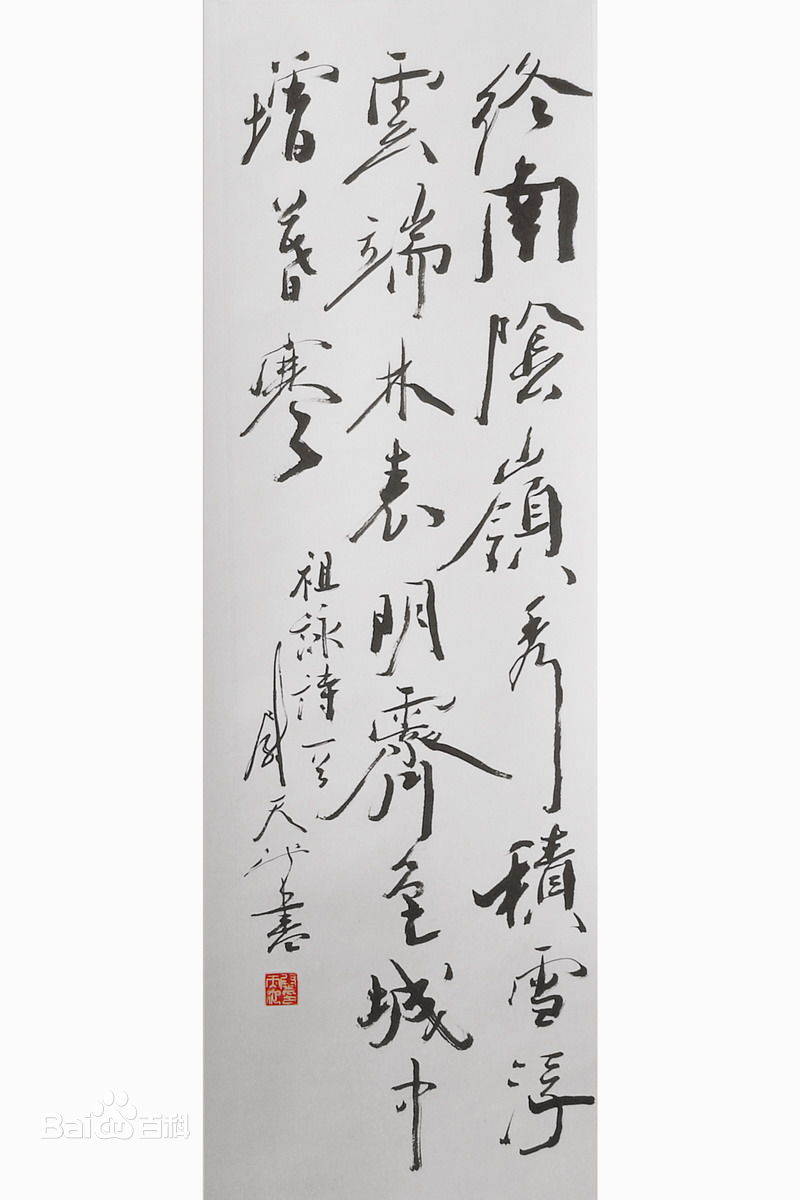 終南陰嶺秀積雪浮
雲端林表明霽色城中
增暮寒
祖詠詩一首
尉天池書
Bai百科